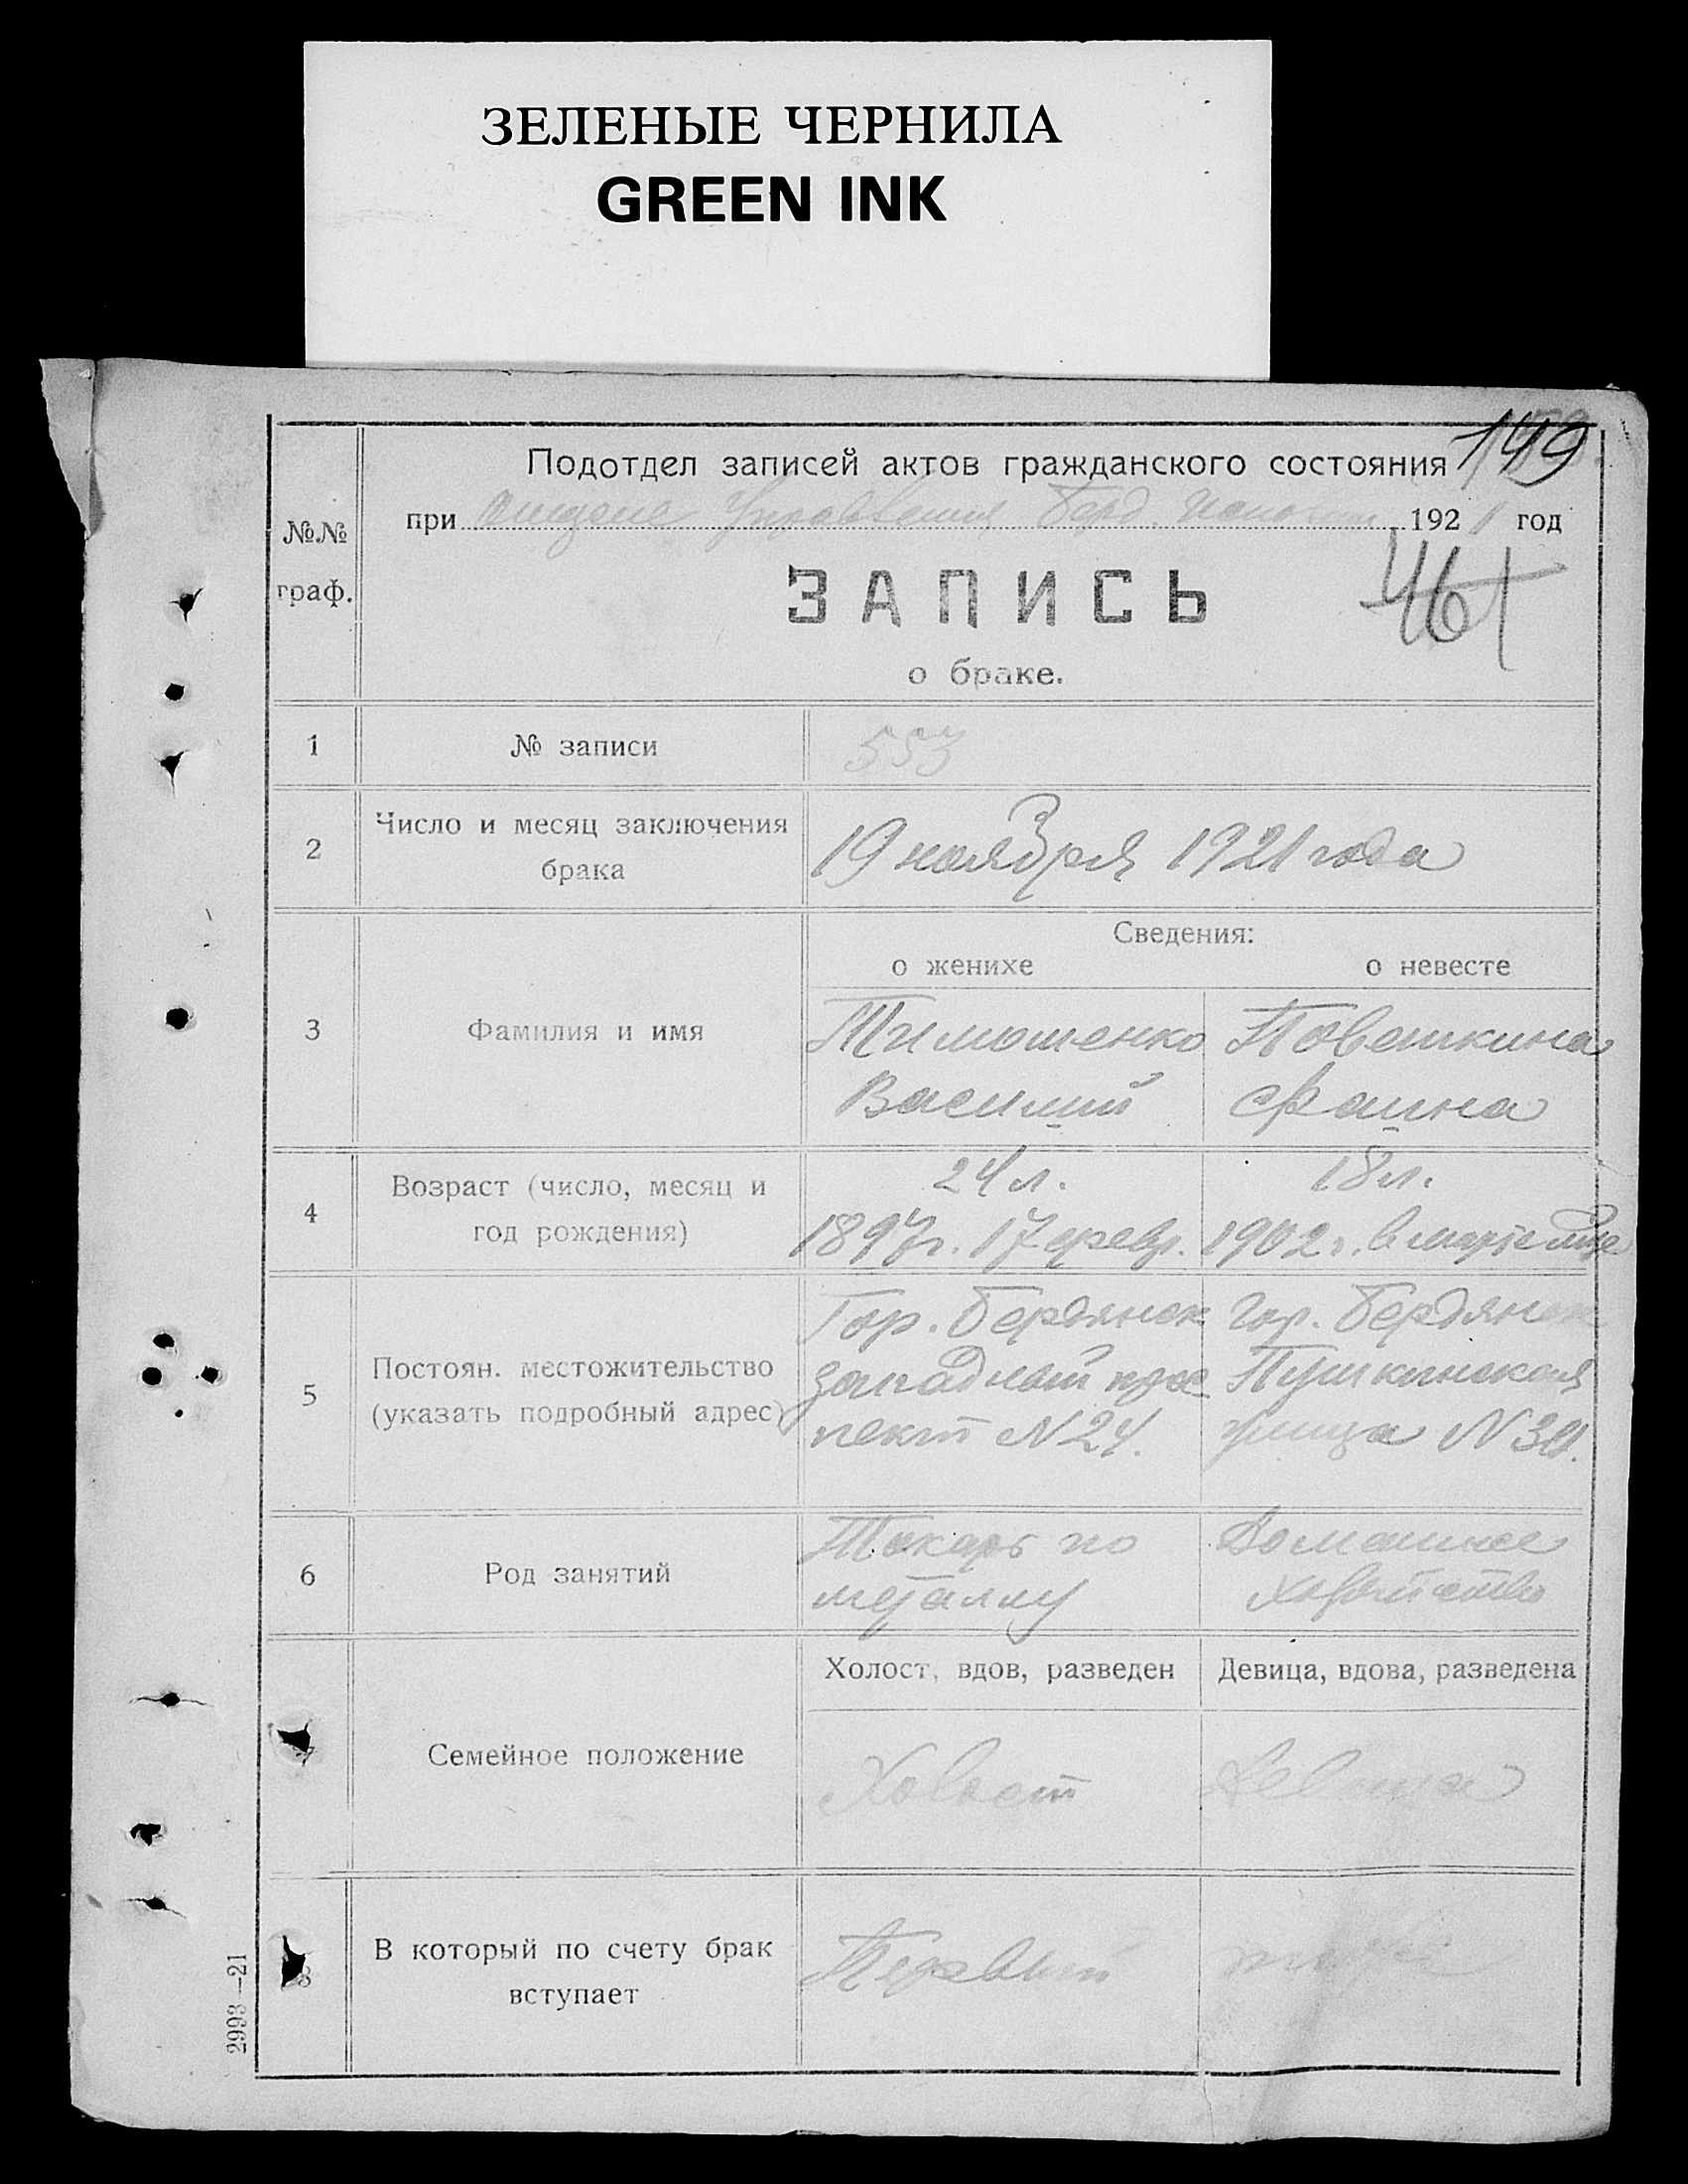 ЗЕЛЕНЫЕ ЧЕРНИЛА
GREEN INK
149
Подотдел записей актов гражданского состояния
при Отделе Управления Берд. 1921 год
№№
граф.
ЗАПИСЬ
461
о браке.
1 № записи 553
2 Число и месяц заключения
брака
19 ноября 1921 года
Сведения:
о женихе о невесте
3 Фамилия и имя
Тимошенко Повешкина
Василий Фаина
4 Возраст (число, месяц и
год рождения)
24 л. 18 л.
1897 г. 17 февр. 1902 г. в марте
5 Постоян. местожительство
(указать подробный адрес)
Гор. Бердянск Гор. Бердянск
западный прос Пушкинская
пект N 24. улица N 30.
6 Род занятий
Токарь по Домашнее
металлу хозяйство
Холост, вдов, разведен Девица, вдова, разведена
7 Семейное положение
Холост Девица
8 В который по счету брак
вступает
Первый тоже
2993—21